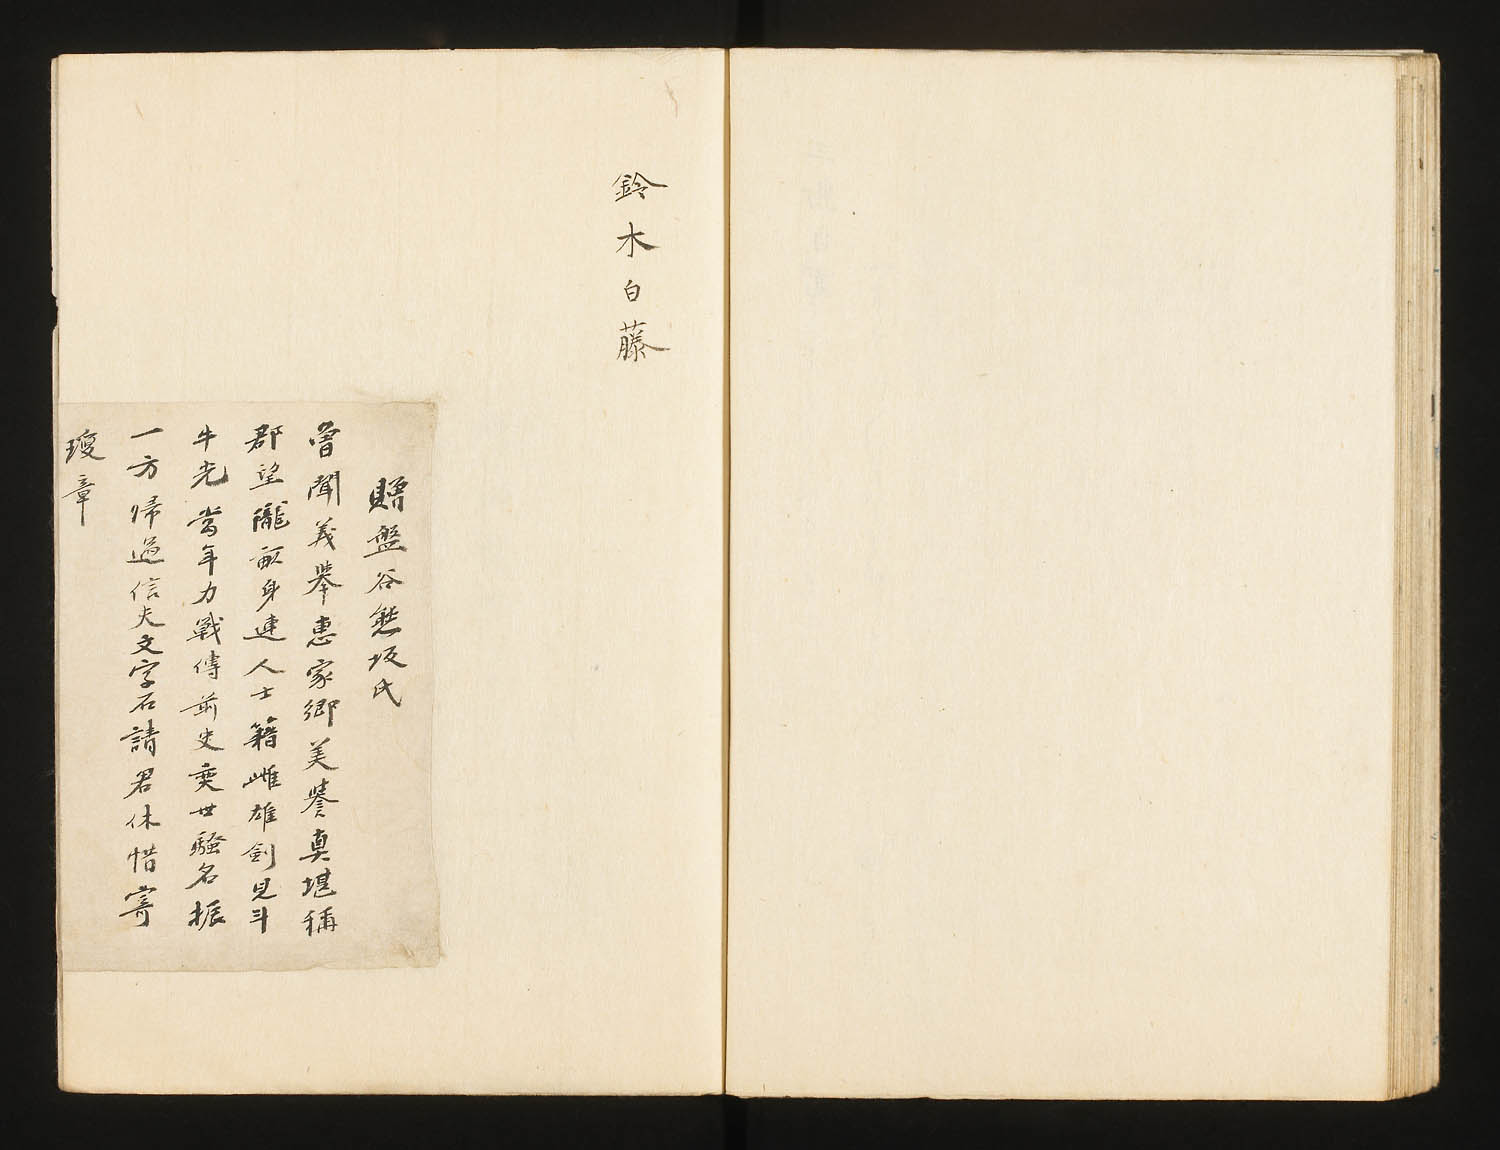 鈴木白藤
贈盤谷熊坂氏
曽聞義挙惠家郷美誉真堪稱
郡望隴畝身連人士籍雌雄剣見斗
牛光當年力戰傳前史奕世騒名振
一方帰過信夫文字石請君休惜寄
瓊章